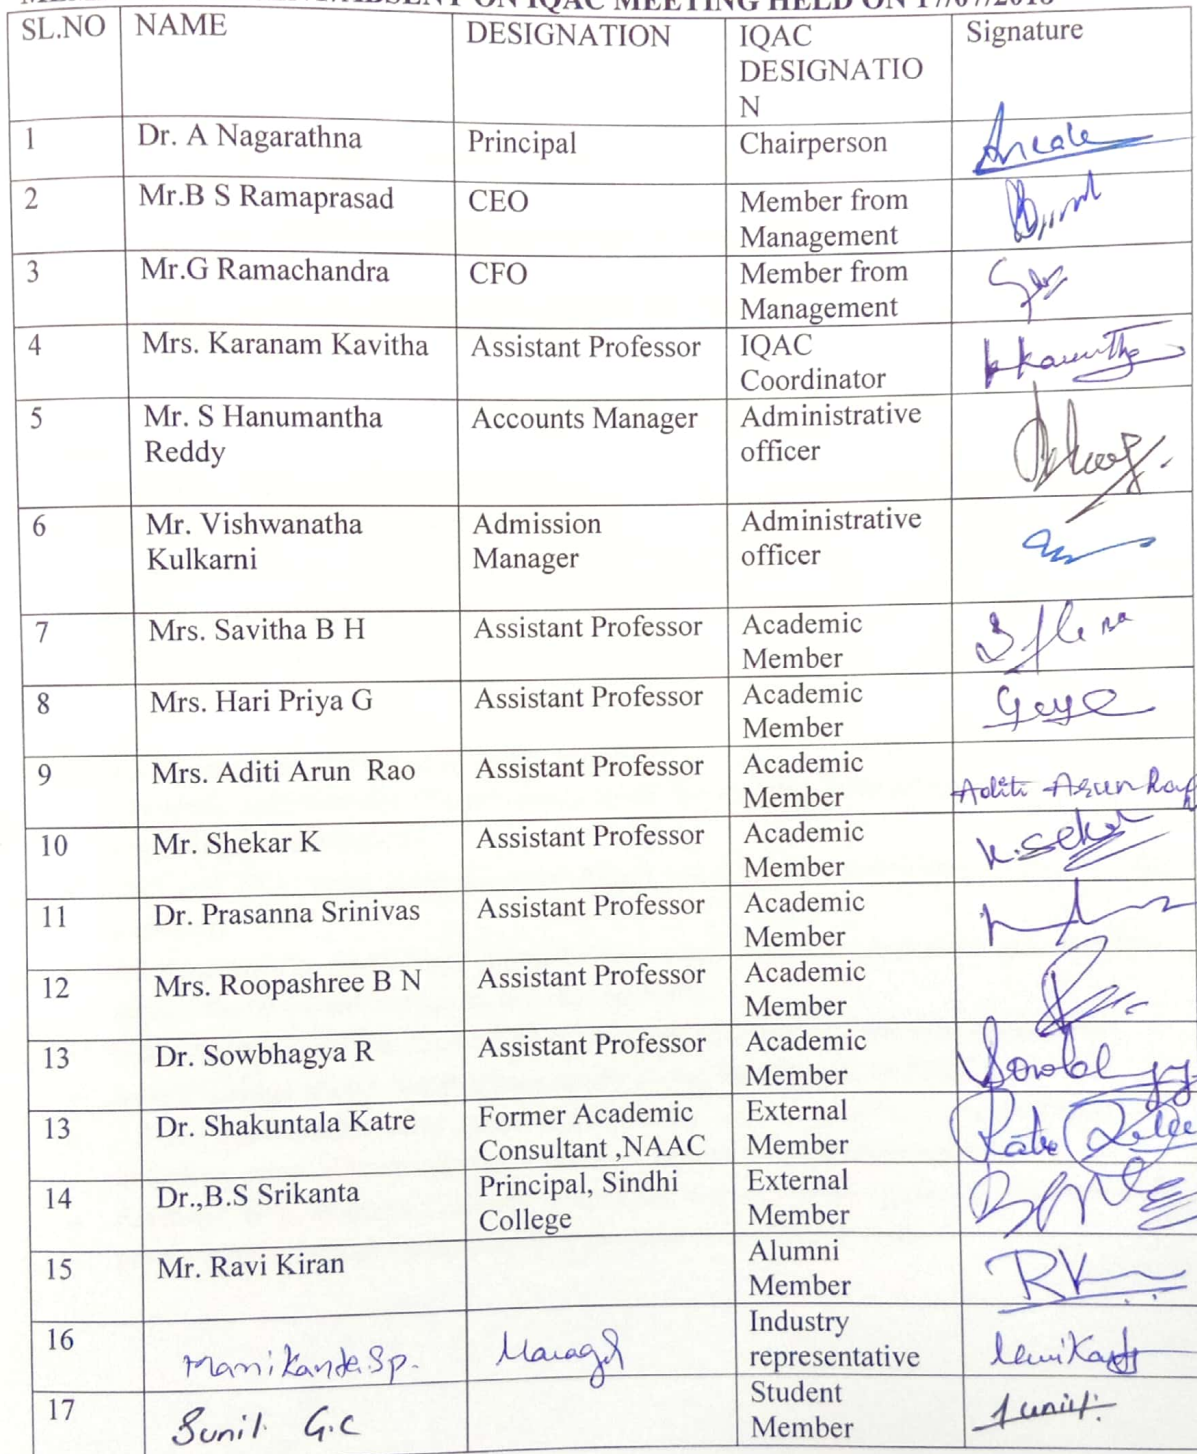 ABSENT ON IQAC MEETING HELD ON 17/07/2018
SL.NO NAME DESIGNATION IQAC DESIGNATIO Signature
N
1 Dr. A Nagarathna Principal Chairperson
2 Mr.B S Ramaprasad CEO Member from
Management
3 Mr.G Ramachandra CFO Member from
Management
4 Mrs. Karanam Kavitha Assistant Professor IQAC
Coordinator
5 Mr. S Hanumantha Accounts Manager Administrative
Reddy officer
6 Mr. Vishwanatha Admission Administrative
Kulkarni Manager officer
7 Mrs. Savitha B H Assistant Professor Academic
Member
8 Mrs. Hari Priya G Assistant Professor Academic
Member
9 Mrs. Aditi Arun Rao Assistant Professor Academic
Member Aditi Arun Rao
10 Mr. Shekar K Assistant Professor Academic
Member K.Sekar
11 Dr. Prasanna Srinivas Assistant Professor Academic
Member
12 Mrs. Roopashree B N Assistant Professor Academic
Member
13 Dr. Sowbhagya R Assistant Professor Academic
Member
13 Dr. Shakuntala Katre Former Academic External
Consultant ,NAAC Member
14 Dr.,B.S Srikanta Principal, Sindhi External
College Member
15 Mr. Ravi Kiran Alumni
Member
16 Manikanda Sp. Manager Industry
representative
17 Sunil G.C Student
Member